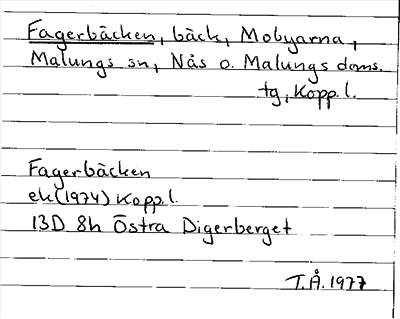 Fagerbäcken, bäck, Mobyarna,
Malungs sn, Nås o. Malungs doms.
tg, Kopp.l.
Fagerbäcken
ek(1974) Kopp.l.
13D 8h Östra Digerberget
T.Å.1977